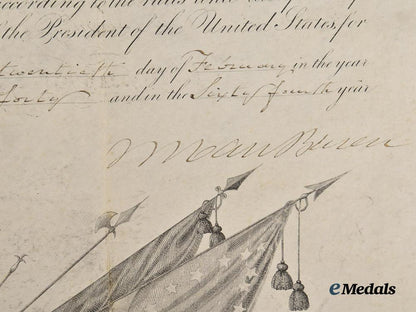 according to the rules and
the President of the United States, for
twentieth day of February in the year
forty and in the Sixty fourth year
M Van Buren
eMedals